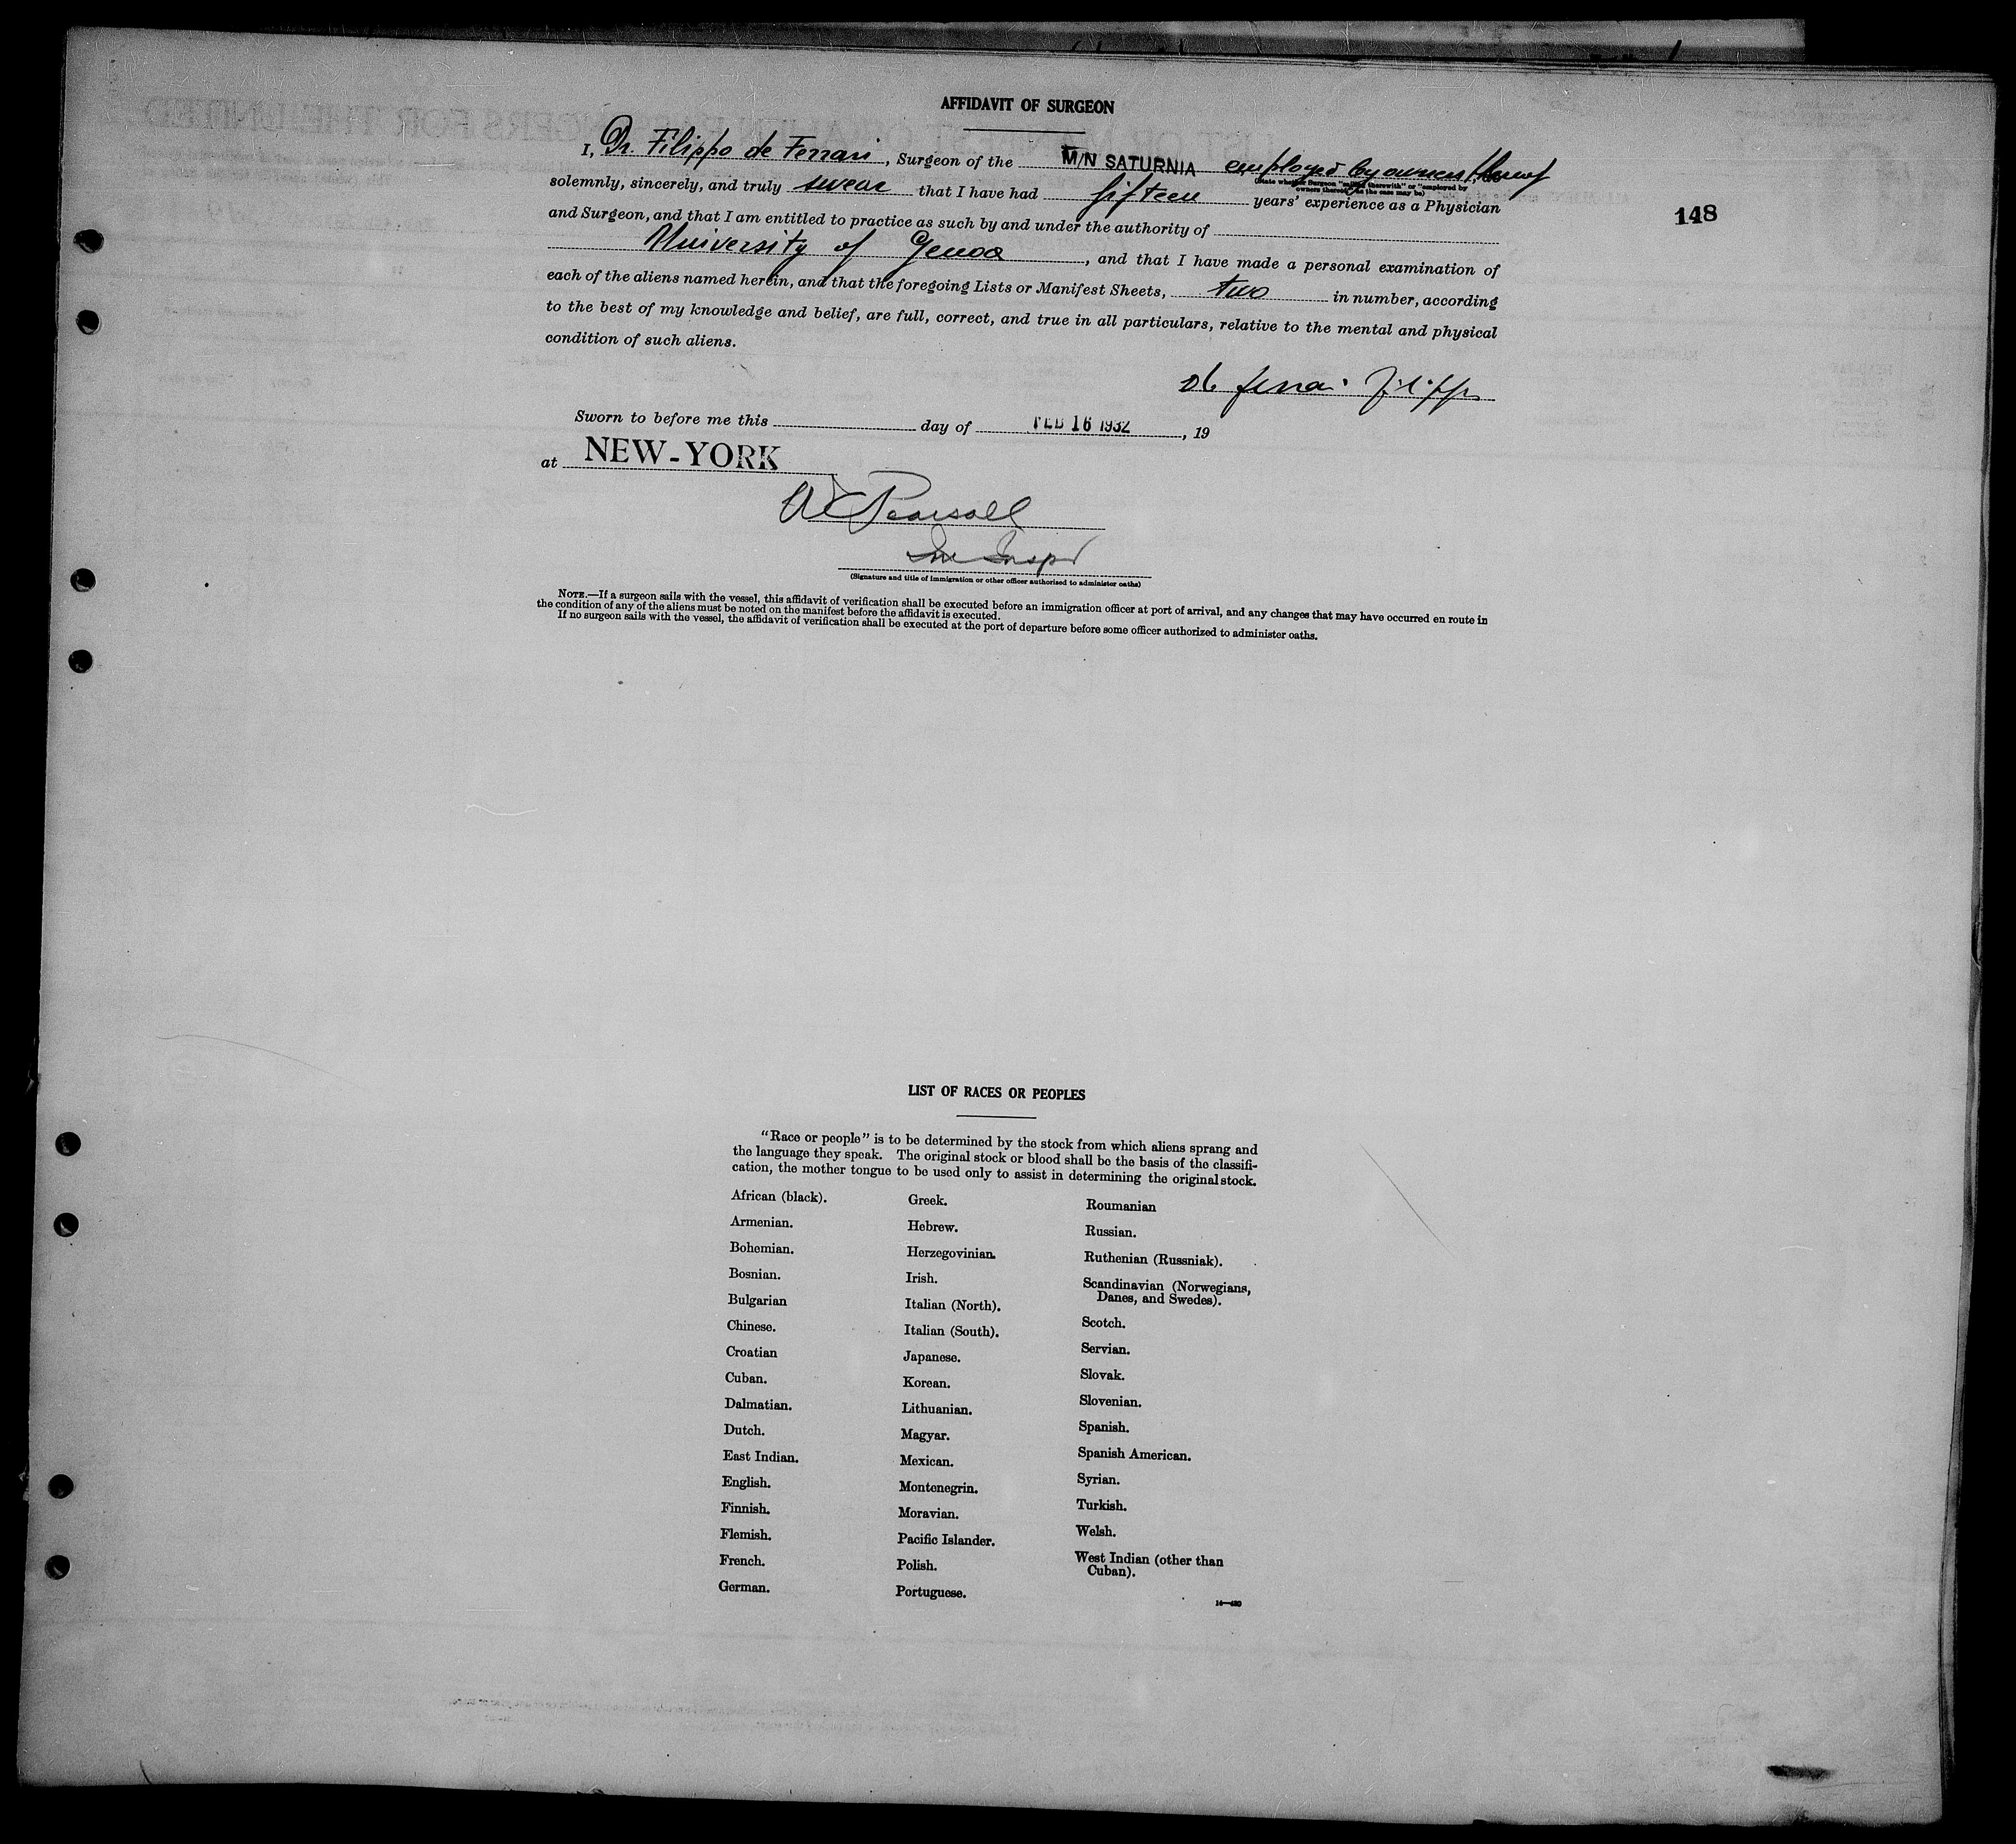 AFFIDAVIT OF SURGEON
I, Dr. Filippo de Ferrari, Surgeon of the M/N SATURNIA employed by owners thereof
(State whether Surgeon "sailing therewith" or "employed by
owners thereof," as the case may be)
solemnly, sincerely, and truly swear that I have had fifteen years' experience as a Physician
148
and Surgeon, and that I am entitled to practice as such by and under the authority of
University of Genoa, and that I have made a personal examination of
each of the aliens named herein, and that the foregoing Lists or Manifest Sheets, two in number, according
to the best of my knowledge and belief, are full, correct, and true in all particulars, relative to the mental and physical
condition of such aliens.
de Ferrari Filippo
Sworn to before me this day of FEB 16 1932, 19
at NEW-YORK
Pearsall
Imm Inspr
(Signature and title of immigration or other officer authorized to administer oaths)
NOTE.—If a surgeon sails with the vessel, this affidavit of verification shall be executed before an immigration officer at port of arrival, and any changes that may have occurred en route in
the condition of any of the aliens must be noted on the manifest before the affidavit is executed.
If no surgeon sails with the vessel, the affidavit of verification shall be executed at the port of departure before some officer authorized to administer oaths.
LIST OF RACES OR PEOPLES
"Race or people" is to be determined by the stock from which aliens sprang and
the language they speak. The original stock or blood shall be the basis of the classifi-
cation, the mother tongue to be used only to assist in determining the original stock.
African (black).
Armenian.
Bohemian.
Bosnian.
Bulgarian
Chinese.
Croatian
Cuban.
Dalmatian.
Dutch.
East Indian.
English.
Finnish.
Flemish.
French.
German.
Greek.
Hebrew.
Herzegovinian.
Irish.
Italian (North).
Italian (South).
Japanese.
Korean.
Lithuanian.
Magyar.
Mexican.
Montenegrin.
Moravian.
Pacific Islander.
Polish.
Portuguese.
Roumanian
Russian.
Ruthenian (Russniak).
Scandinavian (Norwegians,
Danes, and Swedes).
Scotch.
Servian.
Slovak.
Slovenian.
Spanish.
Spanish American.
Syrian.
Turkish.
Welsh.
West Indian (other than
Cuban).